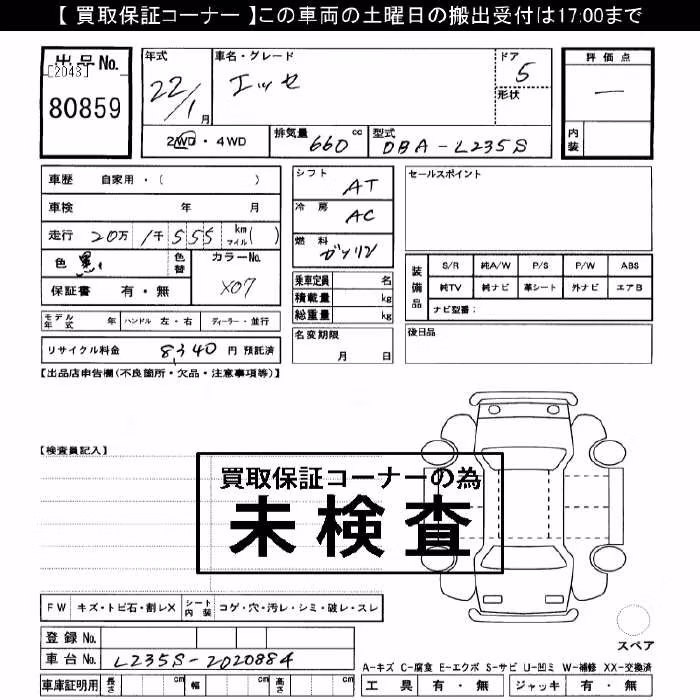 【 買取保証コーナー 】この車両の土曜日の搬出受付は17:00まで
出品No.
[2043]
80859
年式
22/1月
車名・グレード
エッセ
ドア
5
形状
評価点
―
内装
2WD・4WD
排気量 660 cc
型式 DBA-L235S
車歴 自家用・( )
車検 年 月
走行 20万 1千 555 km マイル( )
色 黒
色替
カラーNo.
X07
保証書 有・無
シフト AT
冷房 AC
燃料 ガソリン
乗車定員 名
積載量 kg
総重量 kg
セールスポイント
装備品
S/R 純A/W P/S P/W ABS
純TV 純ナビ 革シート 外ナビ エアB
ナビ型番:
モデル年式 年 ハンドル 左・右 ディーラー・並行
リサイクル料金 8,340 円 預託済
名変期限
月 日
後日品
【出品店申告欄(不良箇所・欠品・注意事項等)】
【検査員記入】
買取保証コーナーの為
未検査
FW キズ・トビ石・割レX シート内装 コゲ・穴・汚レ・シミ・破レ・スレ
スペア
登録No.
車台No. L235S-2020884
車庫証明用 長さ cm 幅 cm 高さ cm
A-キズ C-腐食 E-エクボ S-サビ U-凹ミ W-補修 XX-交換済
工具 有・無 ジャッキ 有・無